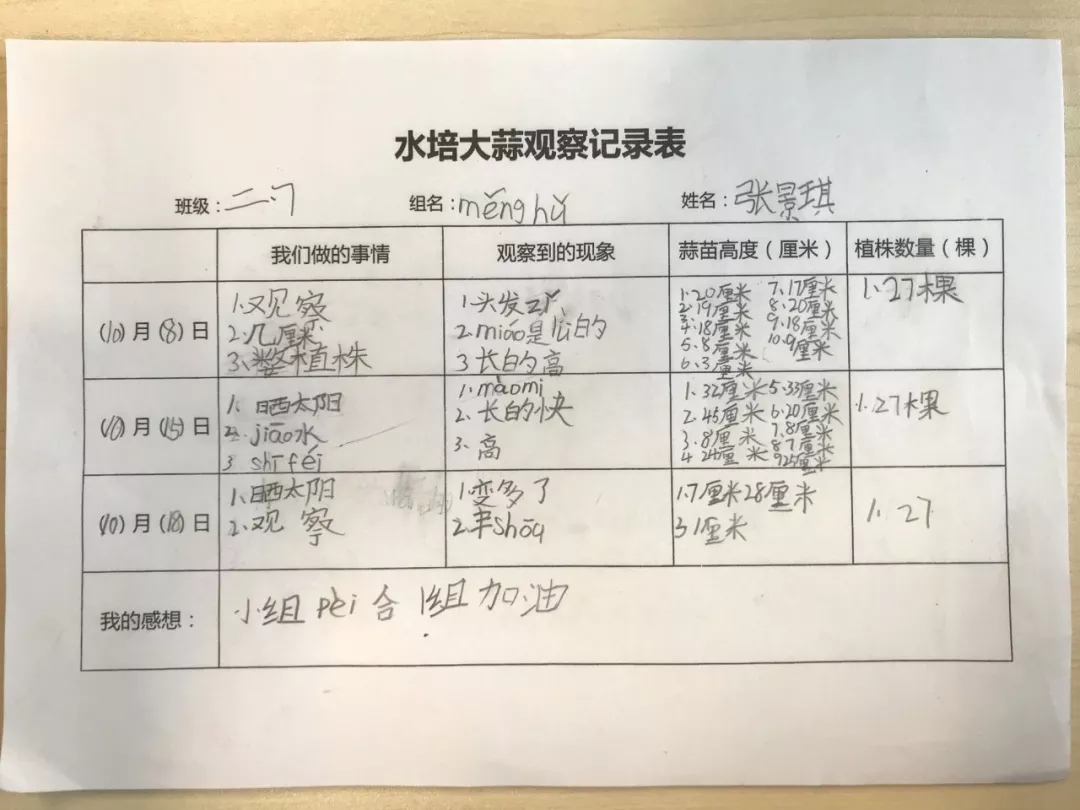 水培大蒜观察记录表
班级：二.7 组名：měng hǔ 姓名：张景琪
我们做的事情 观察到的现象 蒜苗高度（厘米） 植株数量（棵）
(10)月(8)日
1.观察
2.几厘米
3.整植株
1.头发
2.miáo是lǜ的
3长的高
1.20厘米 7.17厘米
2.19厘米 8.20厘米
4.18厘米 9.18厘米
5.8厘米 10.9厘米
6.3厘米
1.27棵
(10)月(15)日
1.晒太阳
2.jiāo水
3 shī féi
1.màomi
2.长的快
3.高
1.32厘米 5.33厘米
2.45厘米 6.20厘米
3.8厘米 7.8厘米
4 24厘米 8.7厘米
925厘米
1.27棵
(10)月(18)日
1.晒太阳
2.观察
1.变多了
2.丰shōu
1.7厘米28厘米
31厘米
1.27
我的感想：
小组pèi合 1组加油